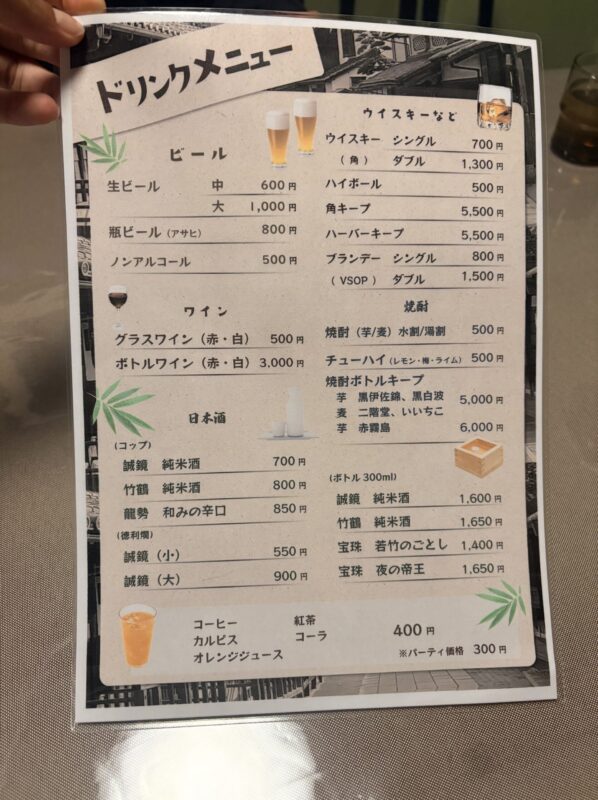 ドリンクメニュー
ビール
生ビール 中 600円
大 1,000円
瓶ビール（アサヒ） 800円
ノンアルコール 500円
ワイン
グラスワイン（赤・白） 500円
ボトルワイン（赤・白） 3,000円
日本酒
（コップ）
誠鏡 純米酒 700円
竹鶴 純米酒 800円
龍勢 和みの辛口 850円
（徳利燗）
誠鏡（小） 550円
誠鏡（大） 900円
ウイスキーなど
ウイスキー シングル 700円
（角） ダブル 1,300円
ハイボール 500円
角キープ 5,500円
ハーバーキープ 5,500円
ブランデー シングル 800円
（VSOP） ダブル 1,500円
焼酎
焼酎（芋/麦）水割/湯割 500円
チューハイ（レモン・梅・ライム） 500円
焼酎ボトルキープ
芋 黒伊佐錦、黒白波
麦 二階堂、いいちこ 5,000円
芋 赤霧島 6,000円
（ボトル 300ml）
誠鏡 純米酒 1,600円
竹鶴 純米酒 1,650円
宝珠 若竹のごとし 1,400円
宝珠 夜の帝王 1,650円
コーヒー 紅茶
カルピス コーラ 400円
オレンジジュース ※パーティ価格 300円